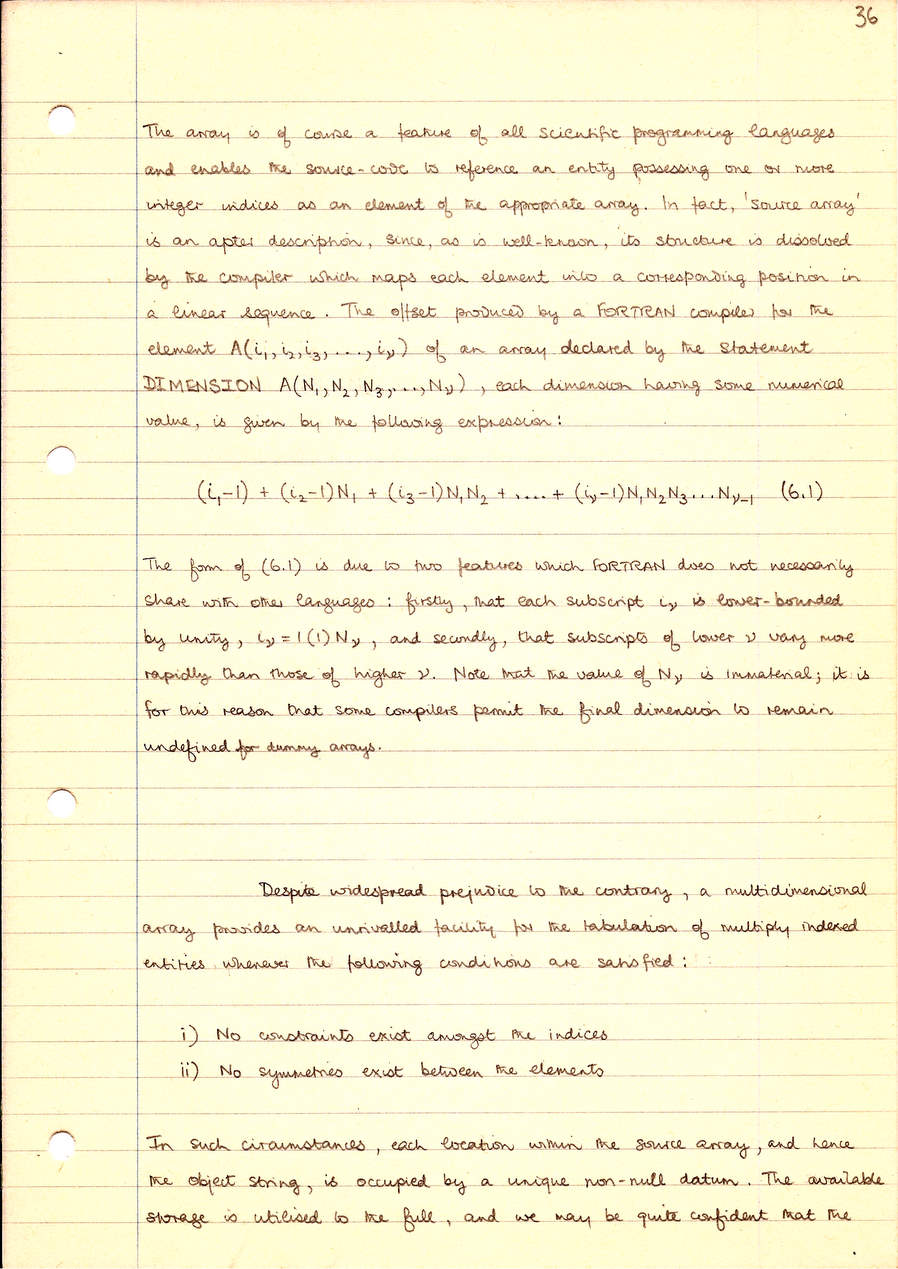 36
The array is of course a feature of all scientific programming languages
and enables the source-code to reference an entity possessing one or more
integer indices as an element of the appropriate array. In fact, 'source array'
is an apter description, since, as is well-known, its structure is dissolved
by the compiler which maps each element into a corresponding position in
a linear sequence. The offset produced by a FORTRAN compiler for the
element A(i₁,i₂,i₃,...,iᵥ) of an array declared by the statement
DIMENSION A(N₁,N₂,N₃,...,Nᵥ), each dimension having some numerical
value, is given by the following expression:
(i₁-1) + (i₂-1)N₁ + (i₃-1)N₁N₂ + .... + (iᵥ-1)N₁N₂N₃...Nᵥ₋₁ (6.1)
The form of (6.1) is due to two features which FORTRAN does not necessarily
share with other languages: firstly, that each subscript iᵥ is lower-bounded
by unity, iᵥ = 1(1)Nᵥ, and secondly, that subscripts of lower ν vary more
rapidly than those of higher ν. Note that the value of Nᵥ is immaterial; it is
for this reason that some compilers permit the final dimension to remain
undefined for dummy arrays.
Despite widespread prejudice to the contrary, a multidimensional
array provides an unrivalled facility for the tabulation of multiply indexed
entities whenever the following conditions are satisfied:
i) No constraints exist amongst the indices
ii) No symmetries exist between the elements
In such circumstances, each location within the source array, and hence
the object string, is occupied by a unique non-null datum. The available
storage is utilised to the full, and we may be quite confident that the